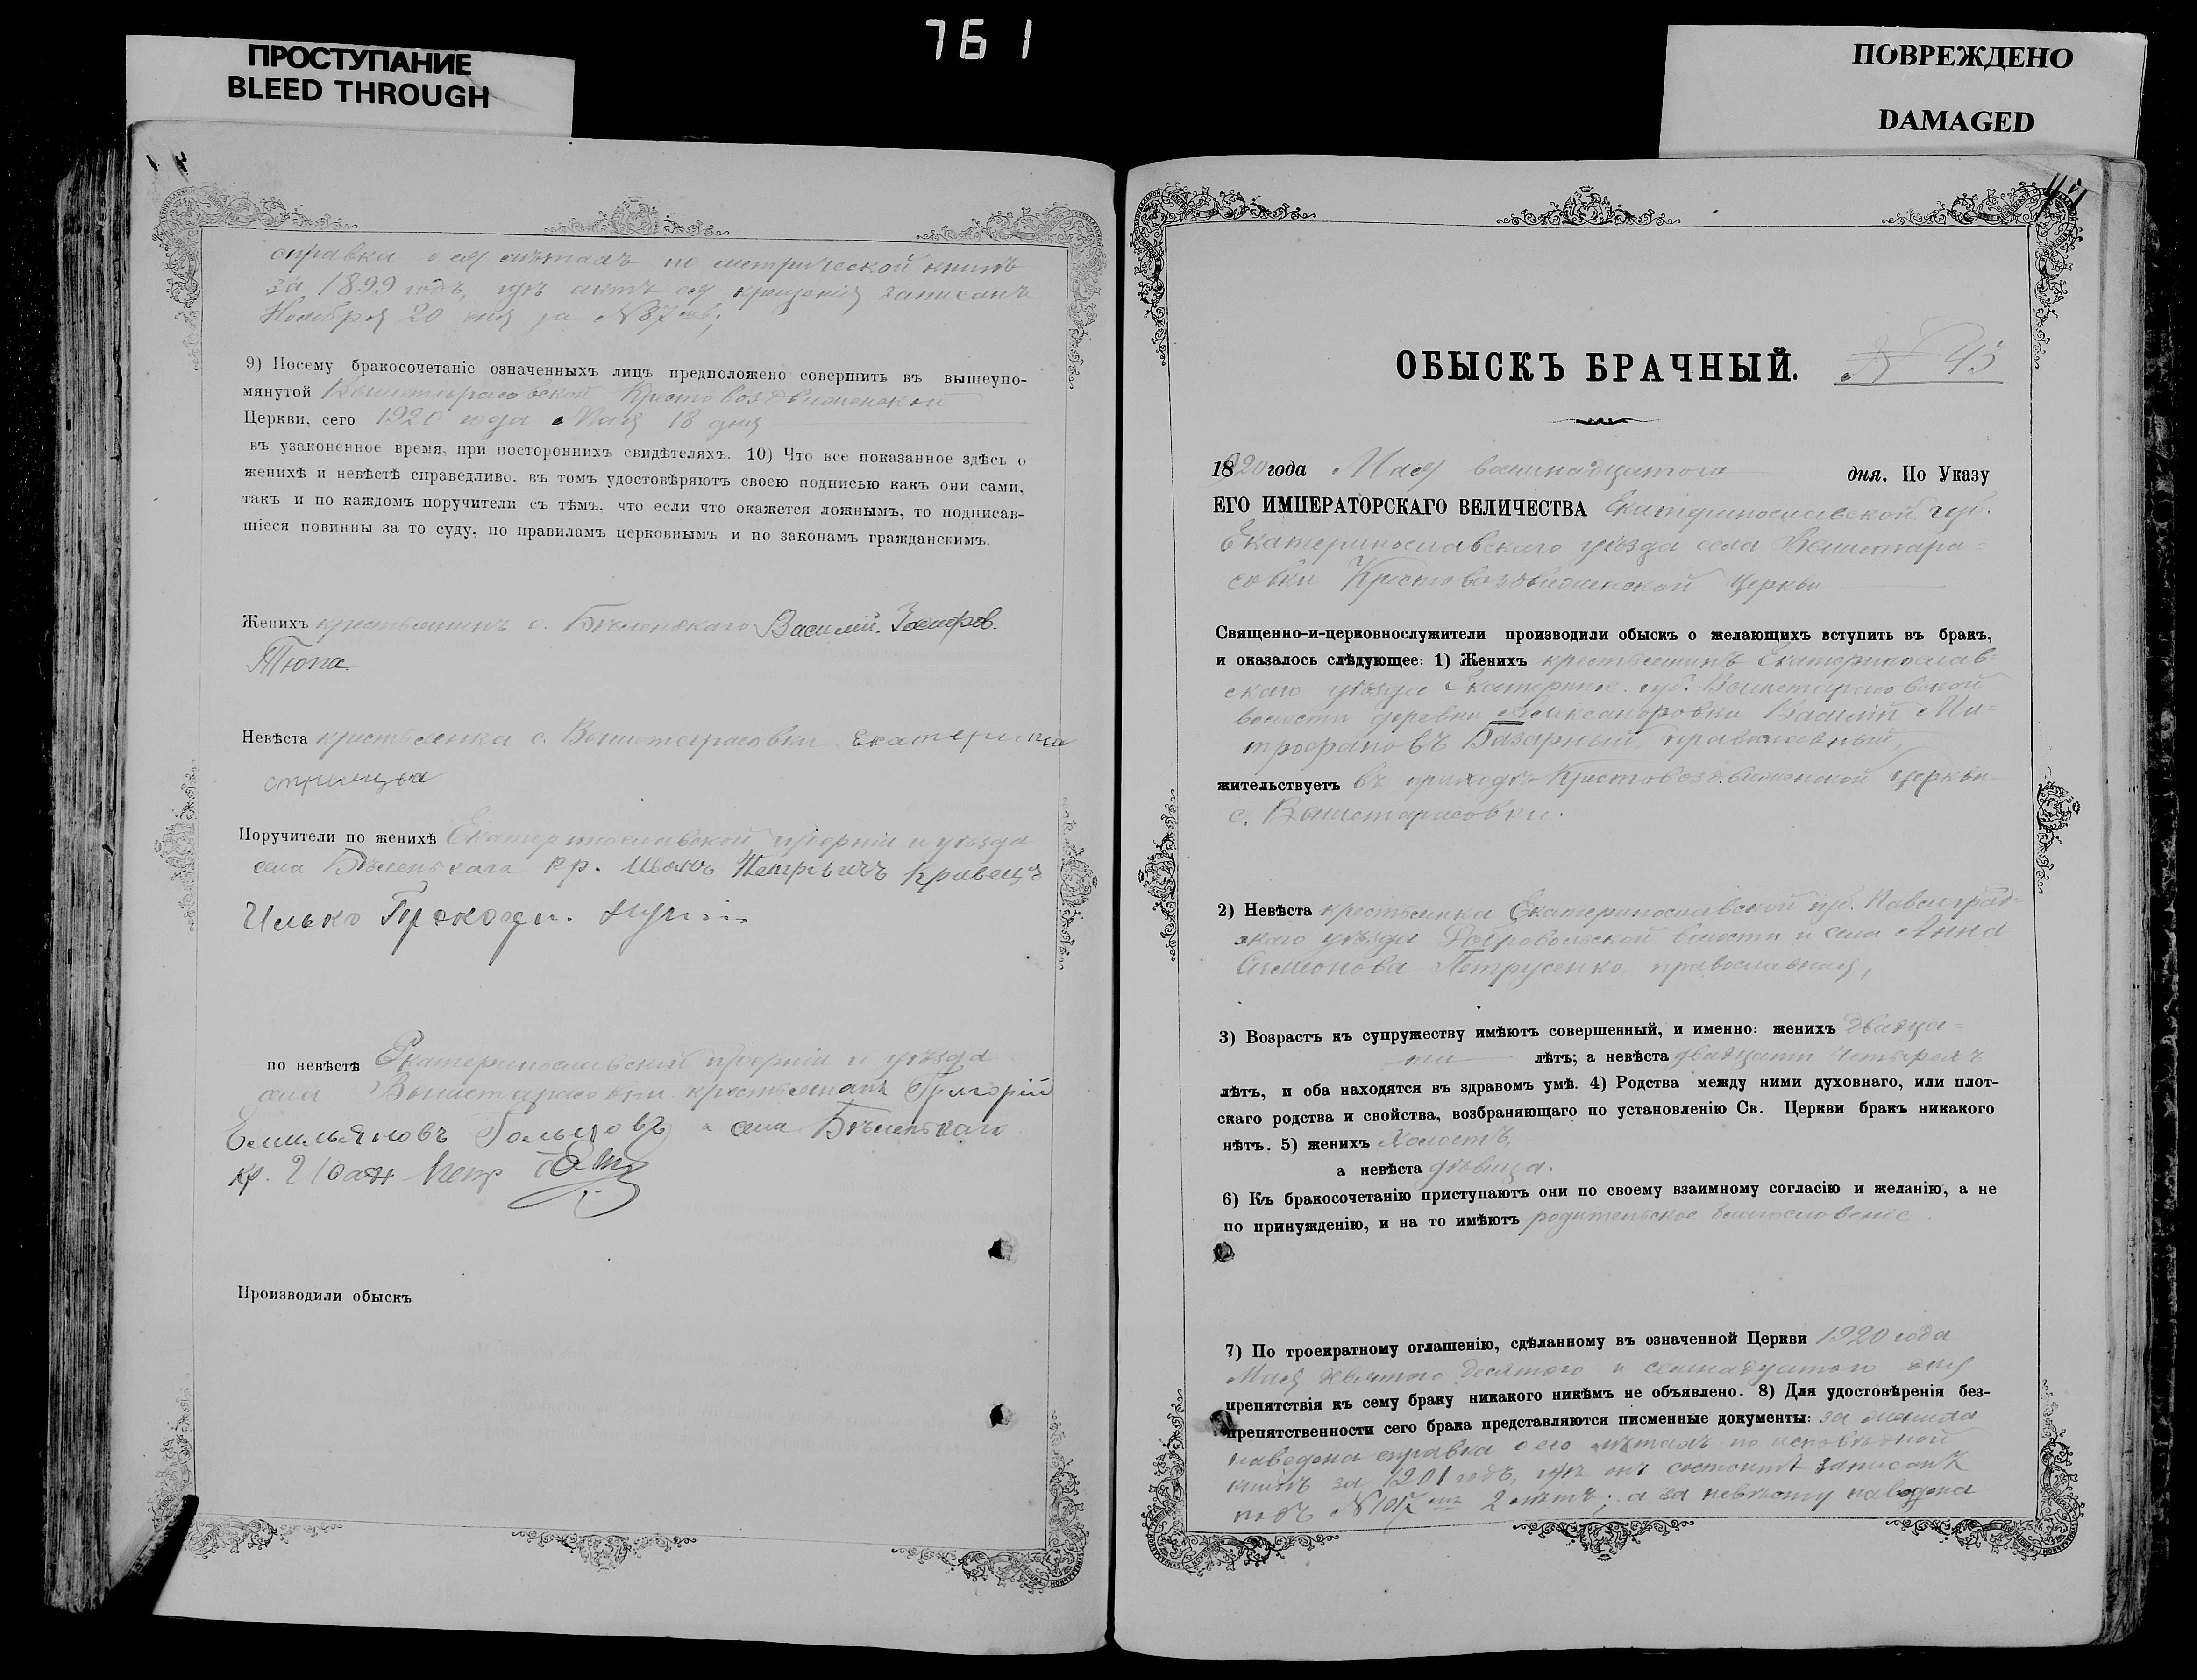 761
ПРОСТУПАНИЕ
BLEED THROUGH
ПОВРЕЖДЕНО
DAMAGED
справка о ея лѣтахъ по метрической книгѣ
за 1899 годъ, гдѣ актъ ея крещенія записанъ
Ноября 20 дня за №87
9) Посему бракосочетаніе означенныхъ лицъ предположено совершить въ вышеупо-
мянутой Вышетарасовской Крестовоздвиженской
Церкви, сего 1920 года Мая 18 дня
въ узаконенное время, при постороннихъ свидѣтеляхъ. 10) Что все показанное здѣсь о
женихѣ и невѣстѣ справедливо, въ томъ удостовѣряютъ своею подписью какъ они сами,
такъ и по каждомъ поручители съ тѣмъ, что если что окажется ложнымъ, то подписав-
шіеся повинны за то суду, по правиламъ церковнымъ и по законамъ гражданскимъ.
Женихъ крестьянинъ с. Бѣленькаго Василій
Тюпа.
Невѣста крестьянка с. Вышетарасовки Екатерина
Поручители по женихѣ Екатеринославской губерніи и уѣзда
села Бѣленькаго кр. Петровичъ Кравецъ
по невѣстѣ Екатеринославской губерніи и уѣзда
села Вышетарасовки крестьянинъ Григорій
Емильяновъ села Бѣленькаго
кр.
Производили обыскъ
ОБЫСКЪ БРАЧНЫЙ. № 45
1920 года Мая восемнадцатого дня. По Указу
ЕГО ИМПЕРАТОРСКАГО ВЕЛИЧЕСТВА Екатеринославской губ.
Екатеринославскаго уѣзда села Вышетара-
совки Крестовоздвиженской церкви
Священно-и-церковнослужители производили обыскъ о желающихъ вступить въ бракъ,
и оказалось слѣдующее: 1) Женихъ крестьянинъ Екатеринослав-
скаго уѣзда Екатериносл. губ. Вышетарасовской
волости деревни Александровки Василій Ми-
трофановъ Базарный, православный,
жительствуетъ въ приходѣ Крестовоздвиженской церкви
с. Вышетарасовки.
2) Невѣста крестьянка Екатеринославской губ. Павлоград-
скаго уѣзда волости и села Анна
Симеонова Петрусенко, православная,
3) Возрастъ къ супружеству имѣютъ совершенный, и именно: женихъ двадца-
ти лѣтъ; а невѣста двадцати четырехъ
лѣтъ, и оба находятся въ здравомъ умѣ. 4) Родства между ними духовнаго, или плот-
скаго родства и свойства, возбраняющаго по установленію Св. Церкви бракъ никакого
нѣтъ. 5) женихъ холостъ,
а невѣста дѣвица.
6) Къ бракосочетанію приступаютъ они по своему взаимному согласію и желанію, а не
по принужденію, и на то имѣютъ родительское благословеніе
7) По троекратному оглашенію, сдѣланному въ означенной Церкви 1920 года
Мая девятого десятого и семнадцатого дня
препятствія къ сему браку никакого никѣмъ не объявлено. 8) Для удостовѣренія без-
препятственности сего брака представляются писменные документы: за жениха
наведена справка о его лѣтахъ по исповѣдной
книгѣ за 1901 годъ, гдѣ онъ состоитъ записанъ
подъ №107 2 лѣтъ; а за невѣсту наведена